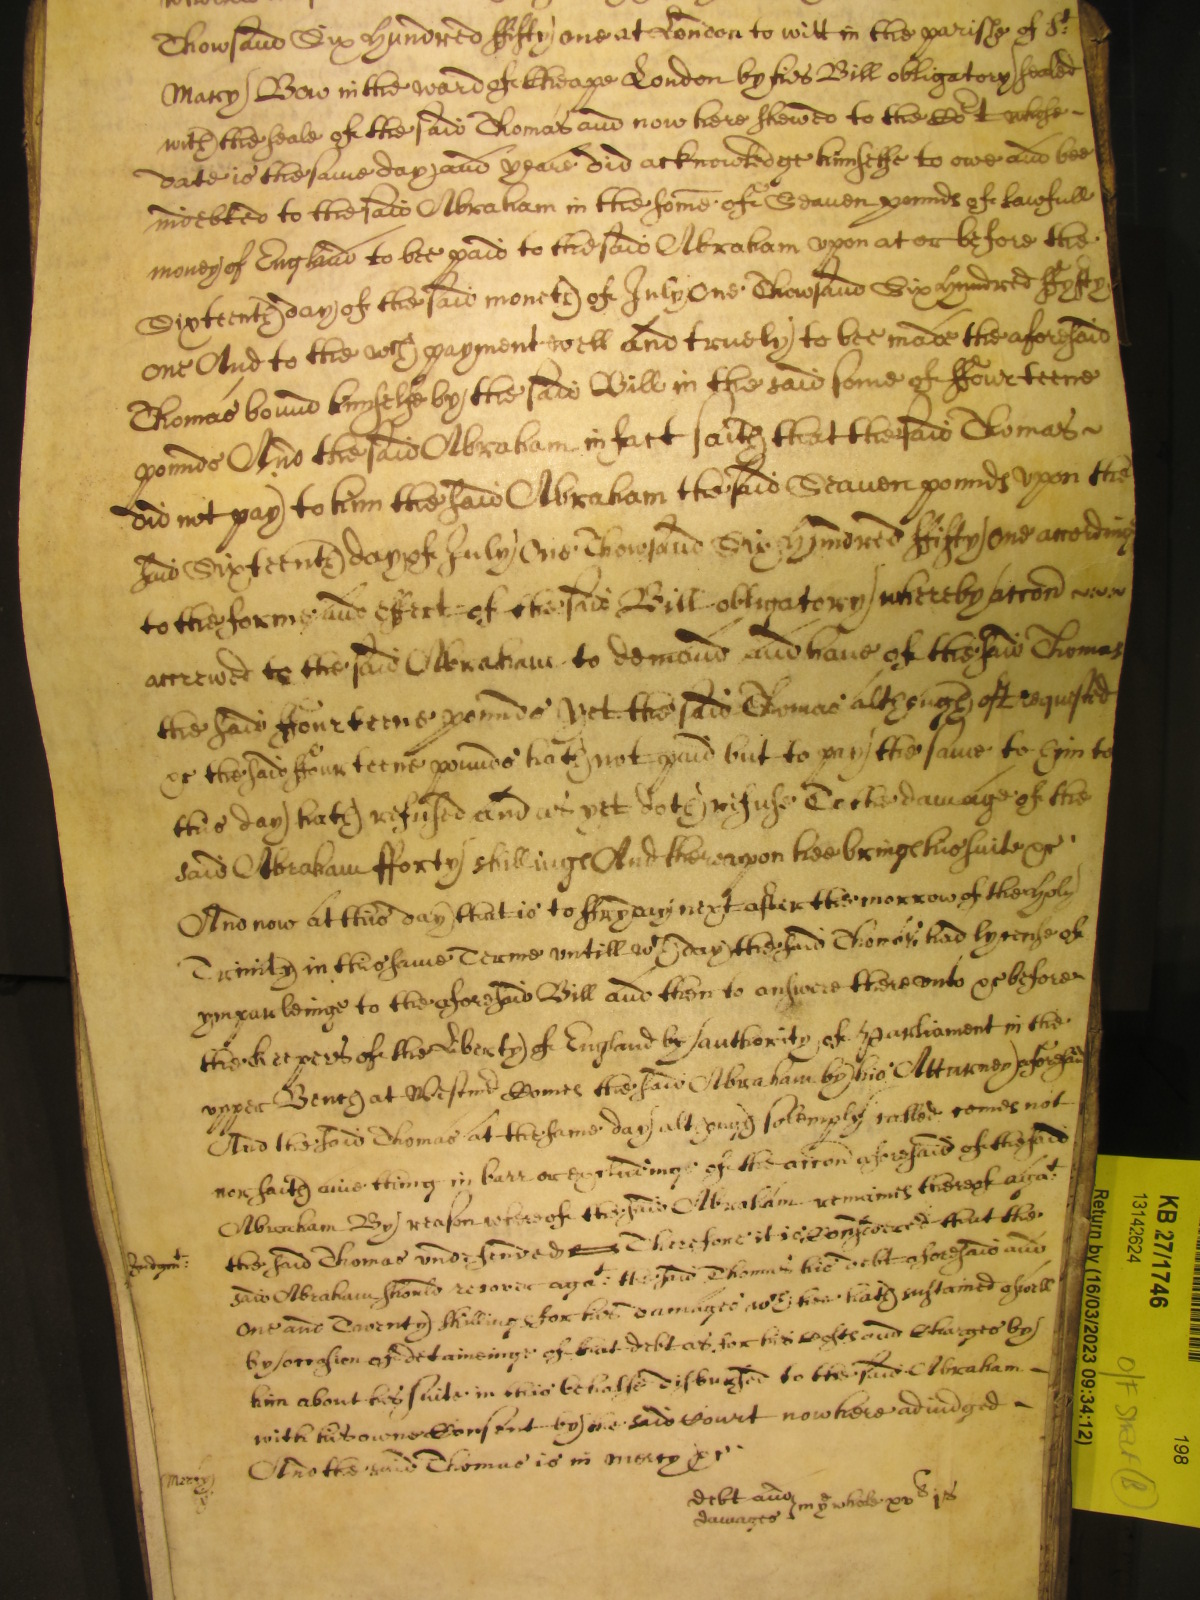 Thowsand Six Hundred ffifty one at London to witt in the parishe of St
Mary Bow in the ward of Cheape London by his Bill obligatory sealed
with the seale of the said Thomas and now here shewed to the Cort whose
date is the same day and yeare did acknowledge himselfe to owe and bee
indebted to the said Abraham in the some of Seaven pounds of lawfull
money of England to bee paid to the said Abraham upon at or before the
Sixteenth day of the said moneth of July One Thowsand Six Hundred ffyfty
one And to the wch payment well and truely to bee made the aforesaid
Thomas bound himselfe by the said Bill in the said some of ffourteene
pounds And the said Abraham in fact saith that the said Thomas
did not pay to him the said Abraham the said Seaven pounds upon the
said Sixteenth day of July One Thowsand Six Hundred ffifty one according
to the forme and effect of the said Bill obligatory whereby accon
accrewed to the said Abraham to demaund and have of the said Thomas
the said ffourteene pounds Yet the said Thomas although oft requested
&c the said ffourteene pounds hath not paid but to pay the same to him to
this day hath refused and as yet doth refuse To the damage of the
said Abraham fforty shillings And thereupon hee brings his suite &c
And now at this day that is to ffryday next after the morrow of the Holy
Trinity in this same Terme untill wch day the said Thomas had lycense of
imparleinge to the aforesaid Bill and then to answere thereunto &c before
the Keepers of the Liberty of England by authority of Parliament in the
upper Bench at Westmr Comes the said Abraham by his Atturney aforesaid
And the said Thomas at the same day although solemply called comes not
nor saith anie thing in barr or excludinge of the accon aforesaid of the said
Abraham By reason whereof the said Abraham remaines thereof agat
the said Thomas undefended Therefore it is Considered that the
Judgmt:
said Abraham should recover agat the said Thomas his debt aforesaid and
One and Twenty shillings for his damages wch hee hath sustained aswell
by occasion of deteininge of that debt as for his Costs and Charges by
him about his suite in this behalfe disbursed to the said Abraham
with his owne Consent by the said Court now here adjudged
And the said Thomas is in mercy &c
Mercy
debt and
damages } in ye whole xvl is
KB 27/1746
13142624
Return by (16/03/2023 09:34:12)
198
O/F SHELF B